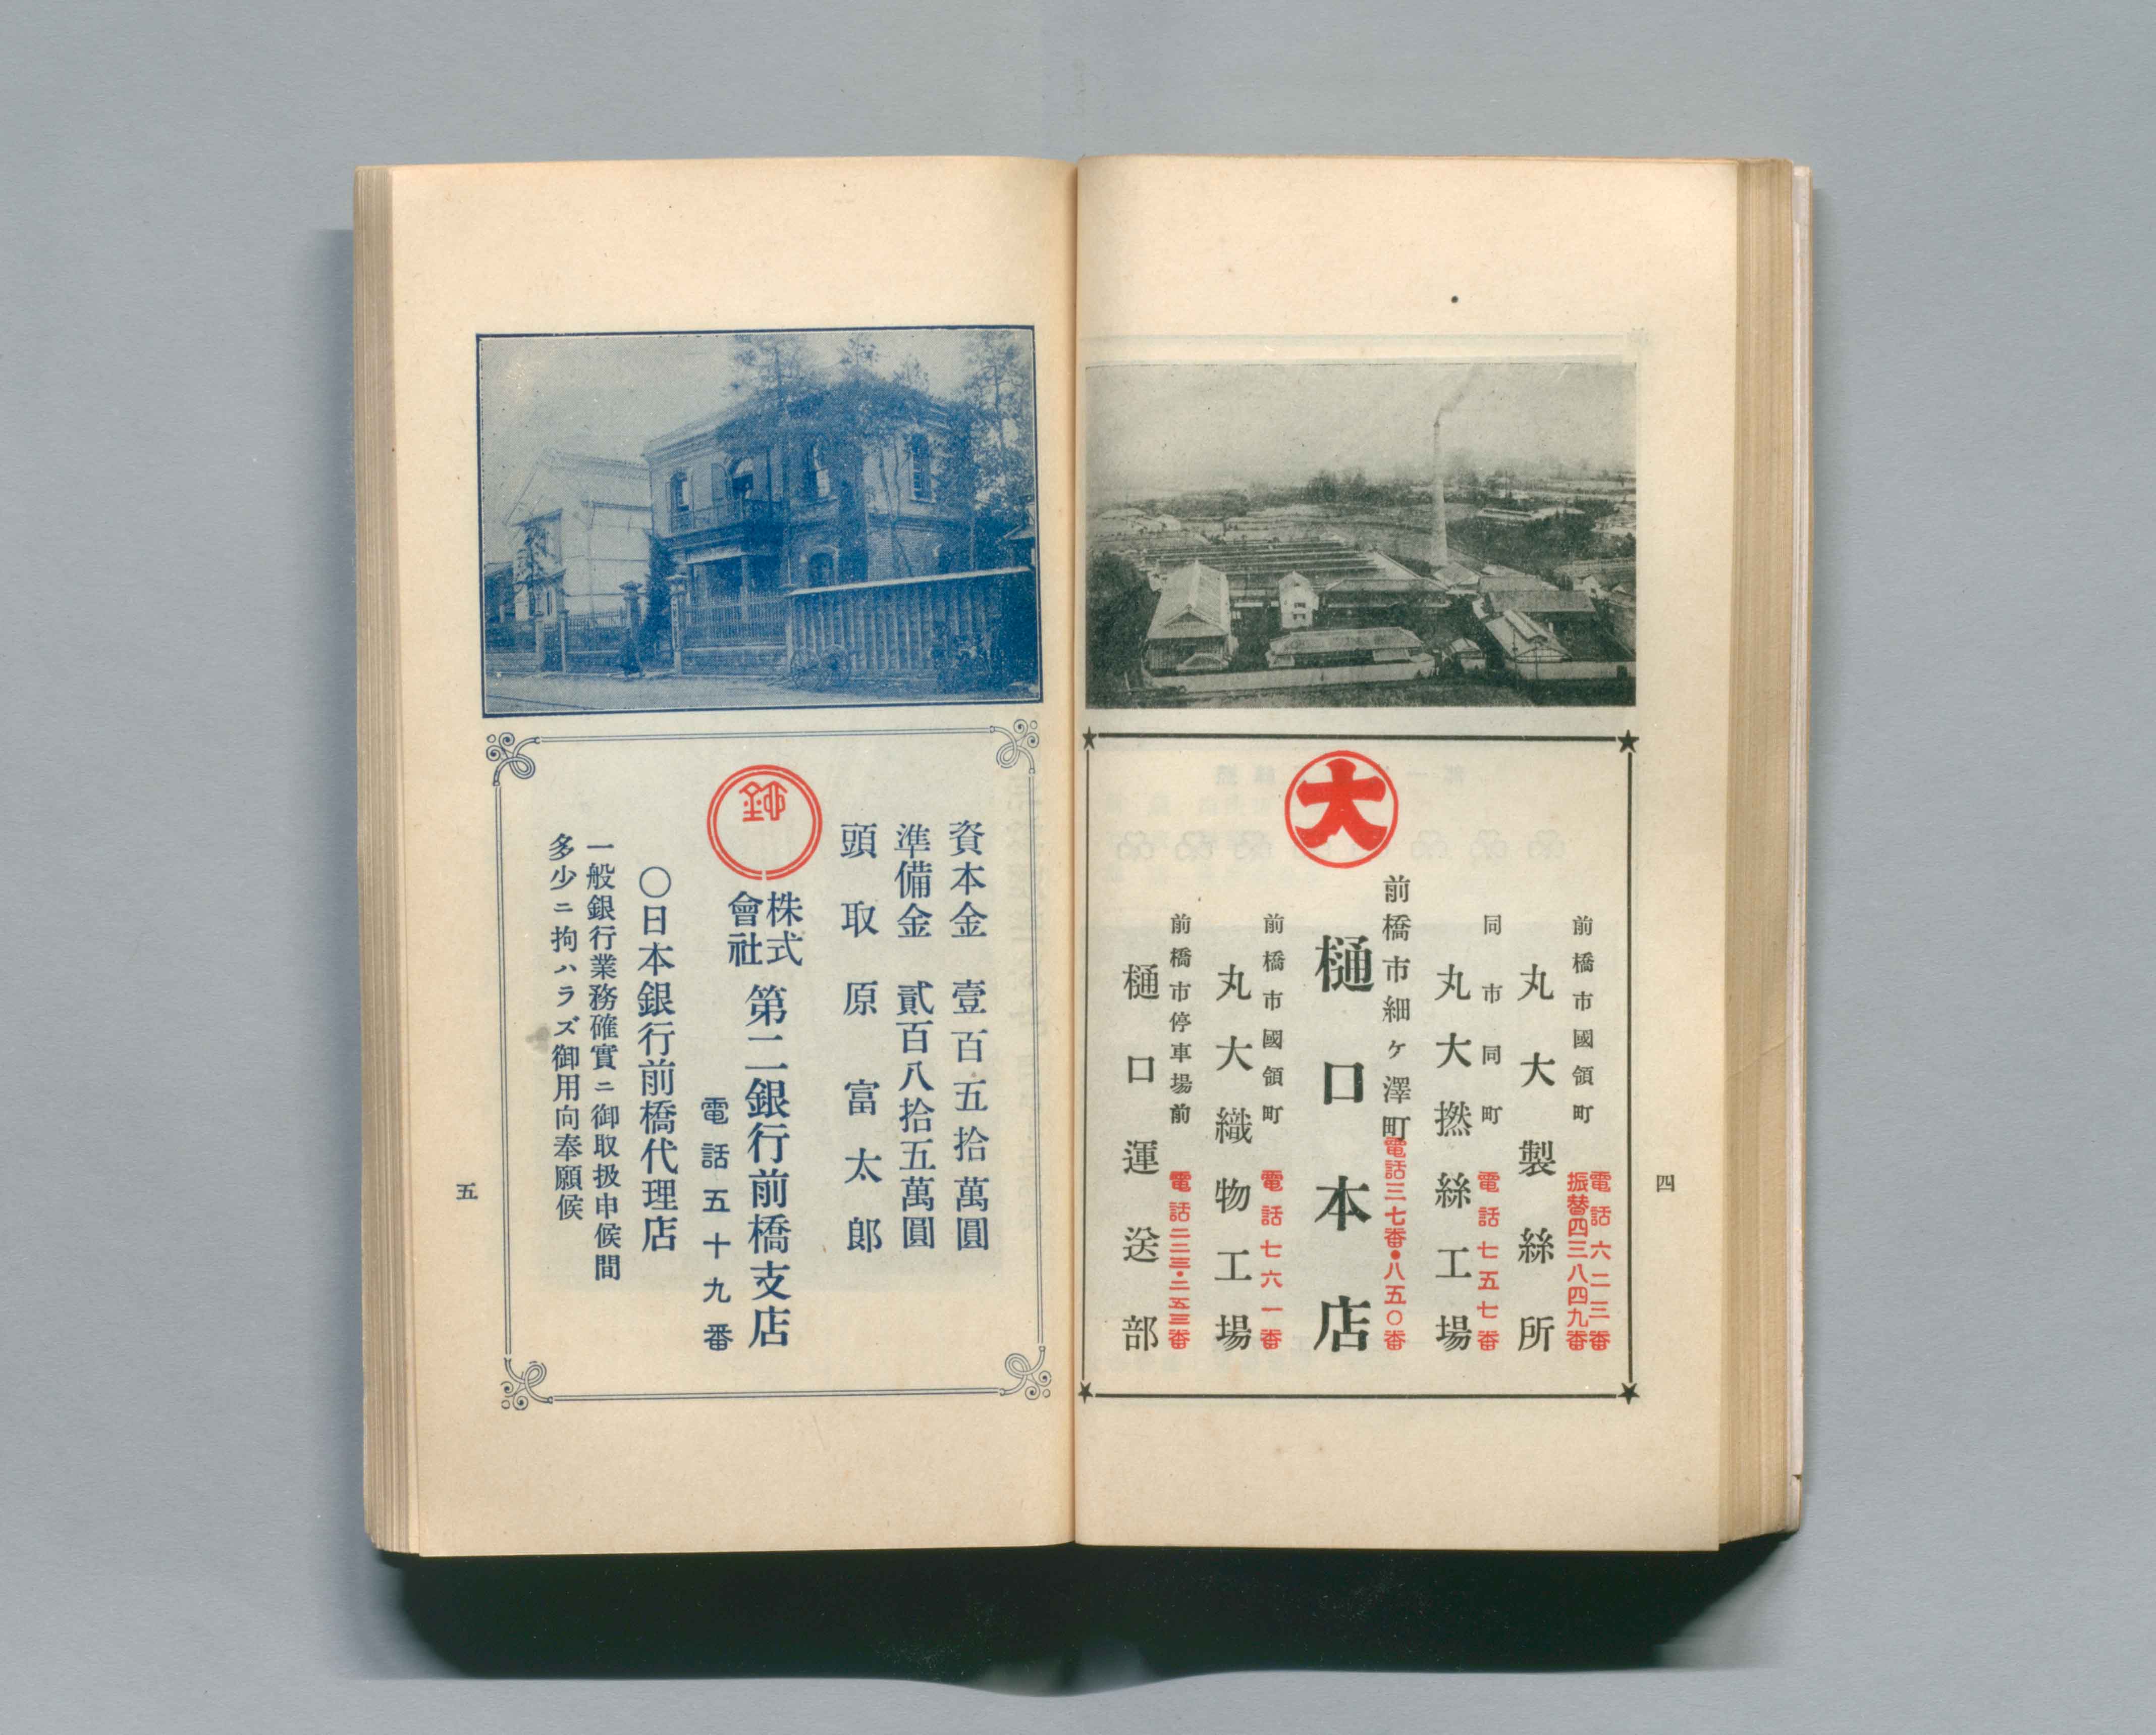 四
大
前橋市國領町
電話六二三番
振替四三八四九番
丸大製絲所
同市同町
電話七五七番
丸大撚絲工場
前橋市細ヶ澤町
電話三七番・八五〇番
樋口本店
前橋市國領町
電話七六一番
丸大織物工場
前橋市停車場前
電話二三三・二五三番
樋口運送部
資本金 壹百五拾萬圓
準備金 貳百八拾五萬圓
頭取 原富太郎
株式會社 第二銀行前橋支店
電話五十九番
〇日本銀行前橋代理店
一般銀行業務確實ニ御取扱申候間
多少ニ拘ハラズ御用向奉願候
五